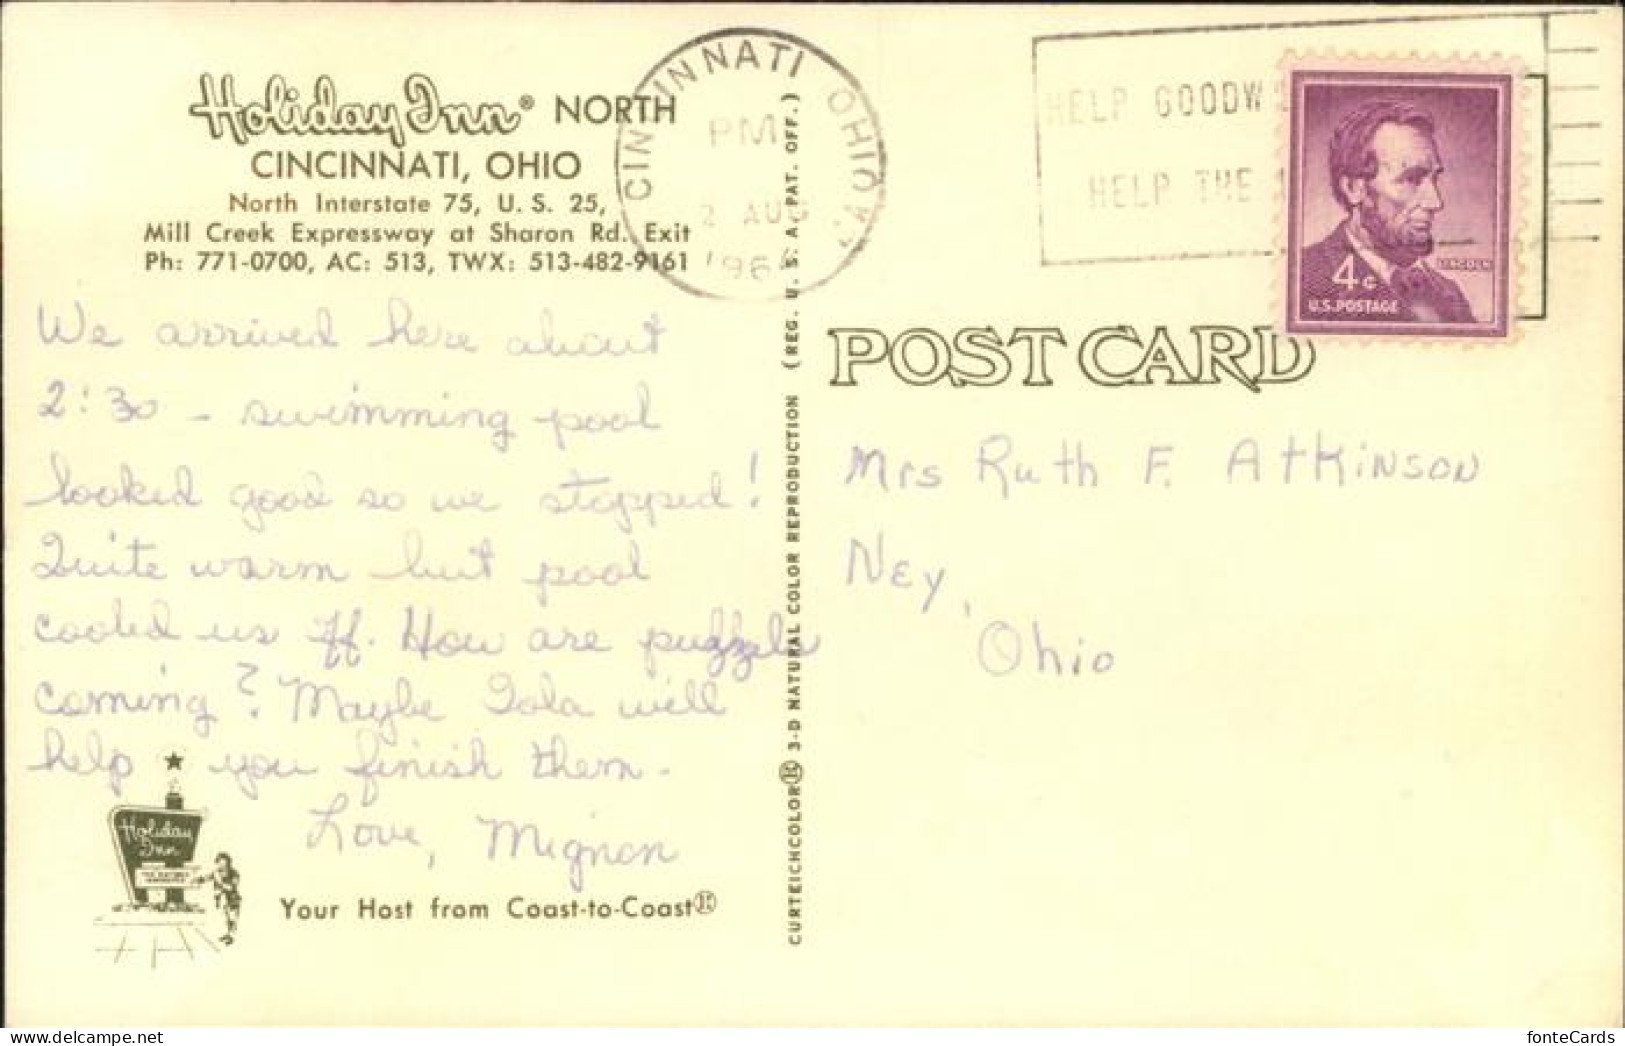 Holiday Inn® NORTH
CINCINNATI, OHIO
North Interstate 75, U. S. 25,
Mill Creek Expressway at Sharon Rd. Exit
Ph: 771-0700, AC: 513, TWX: 513-482-9161
We arrived here about
2:30 - swimming pool
looked good so we stopped!
Quite warm but pool
cooled us off. How are puzzels
coming? Maybe Iola will
help you finish them.
Love, Mignon
Holiday
Inn
Your Host from Coast-to-Coast®
CURTEICHCOLOR® 3-D NATURAL COLOR REPRODUCTION (REG. U. S. A. PAT. OFF.)
CINCINNATI OHIO
PM
2 AUG
196
HELP GOODW
HELP THE
4c
LINCOLN
U.S. POSTAGE
POST CARD
Mrs Ruth F. Atkinson
Ney,
Ohio
fonteCards